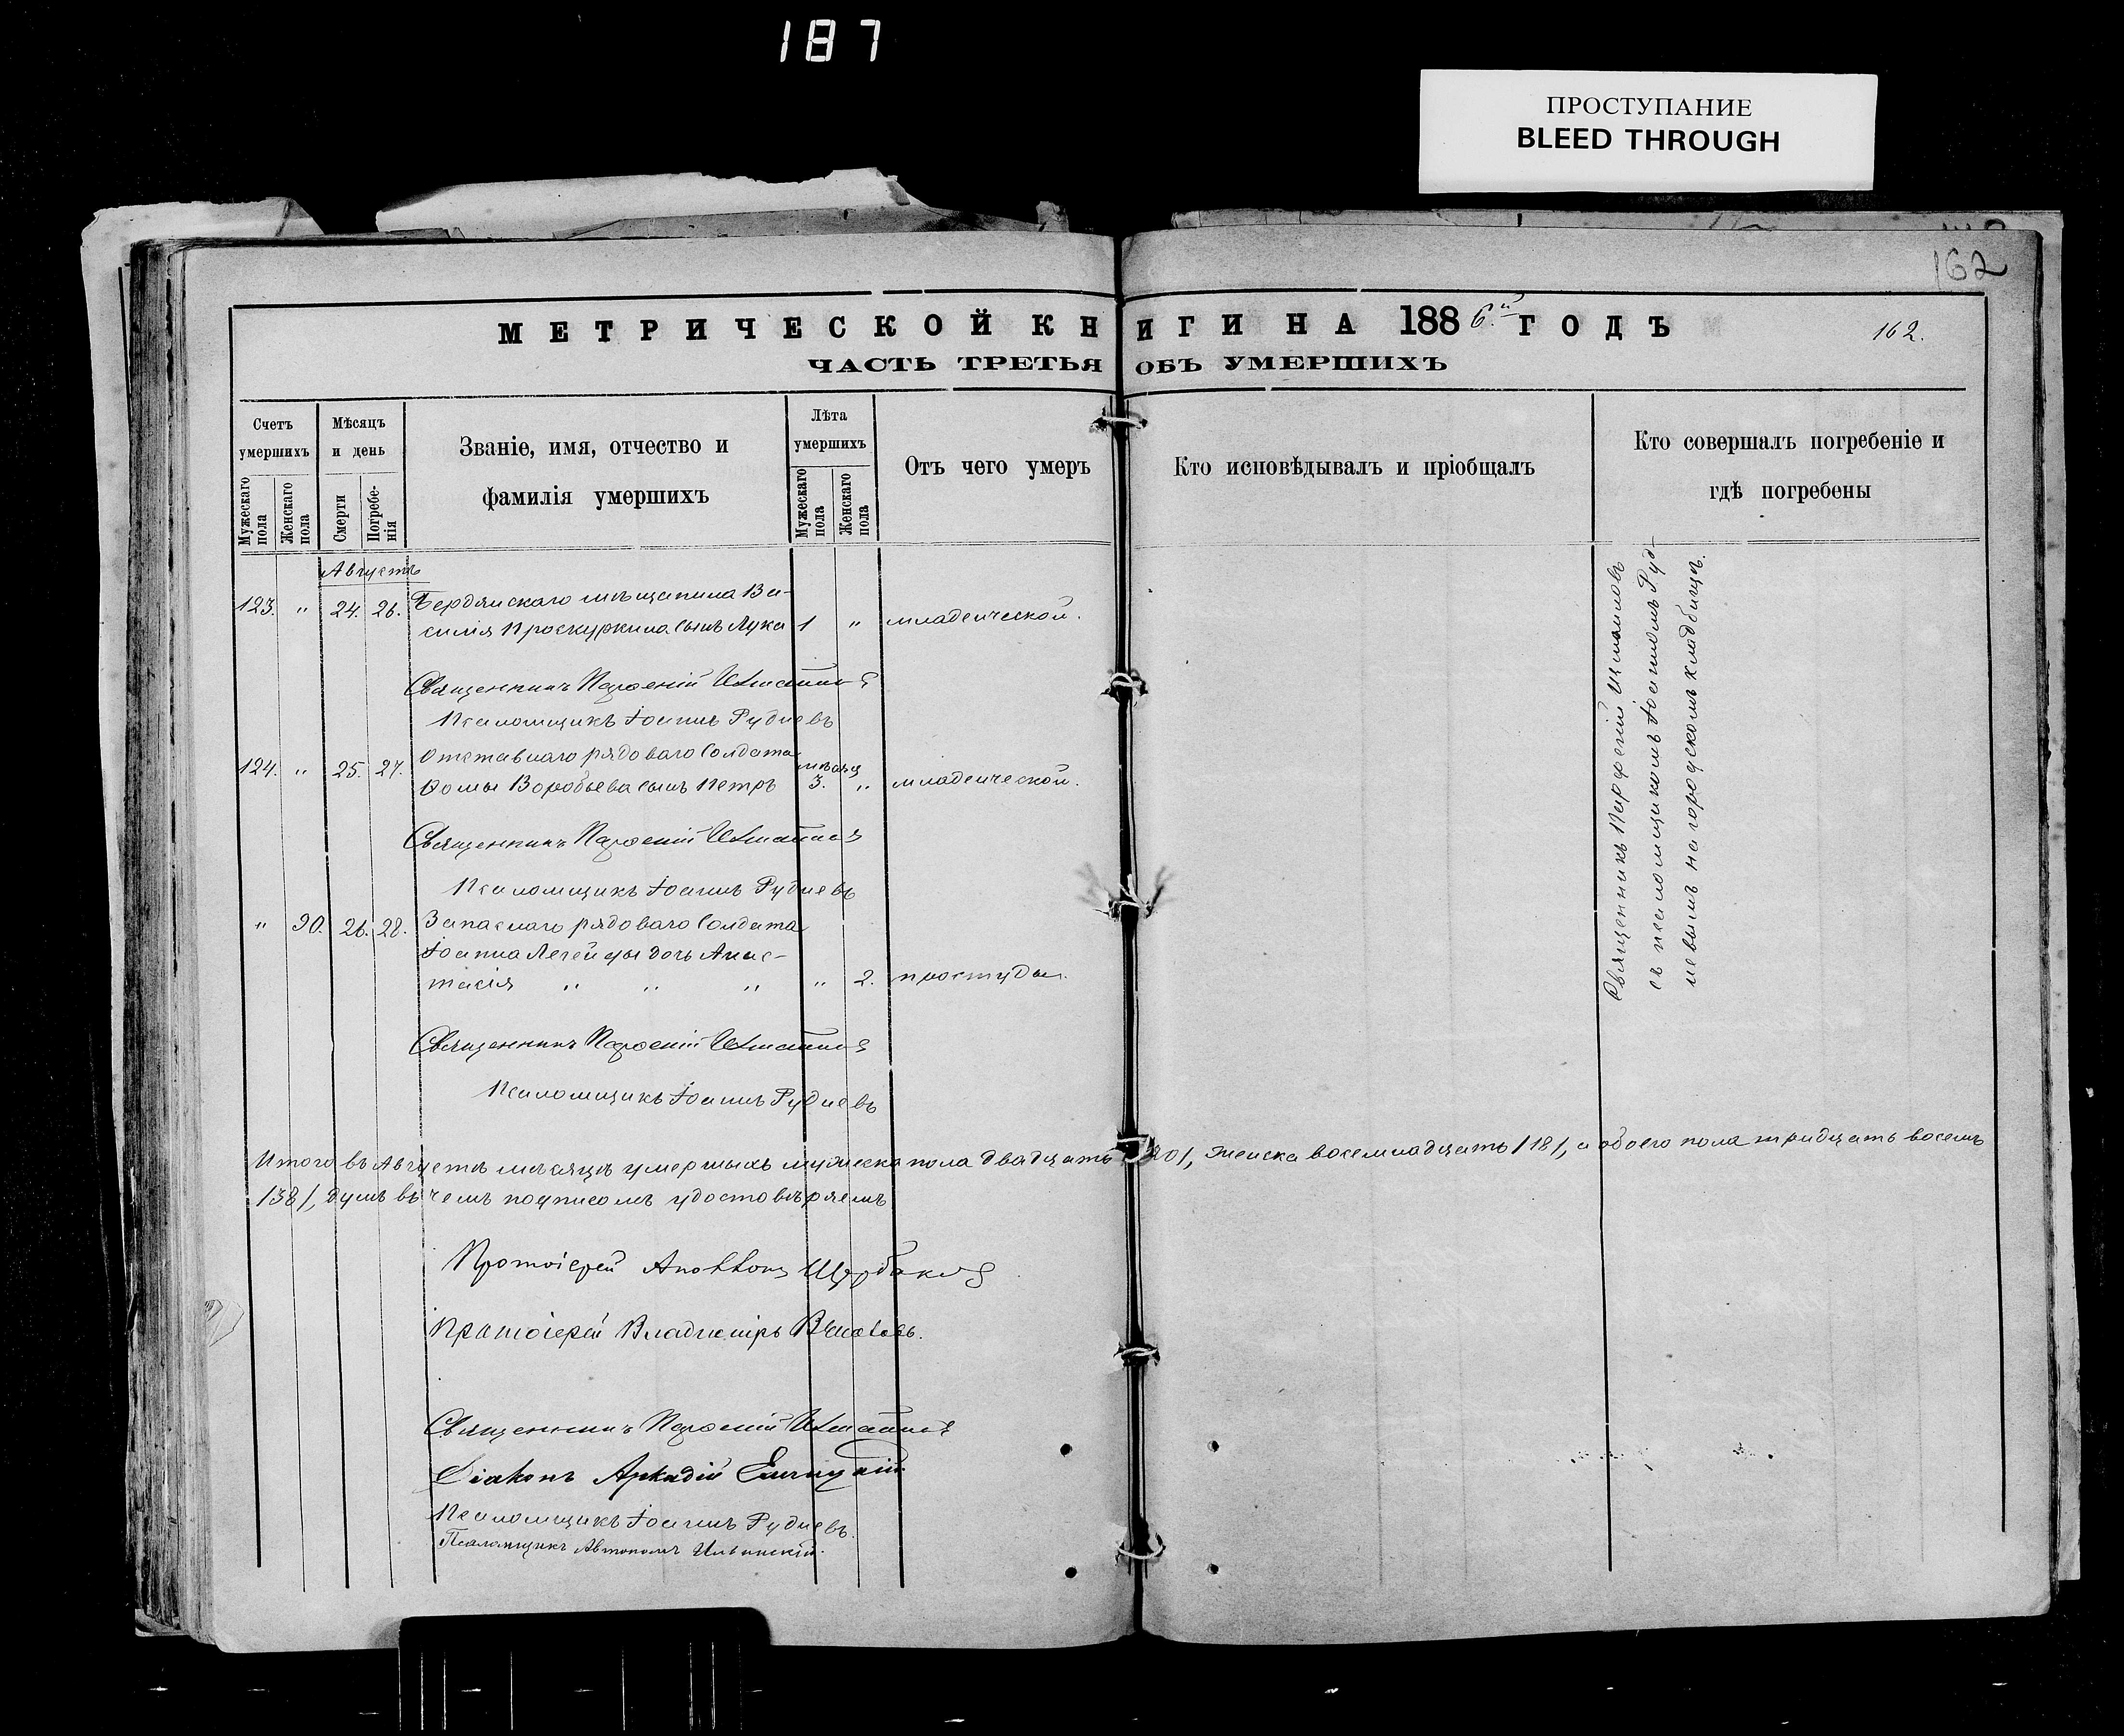 187
ПРОСТУПАНИЕ
BLEED THROUGH
162
МЕТРИЧЕСКОЙ КНИГИ НА 1886.й ГОДЪ
162.
ЧАСТЬ ТРЕТЬЯ ОБЪ УМЕРШИХЪ
Счетъ умершихъ
Мужескаго пола
Женскаго пола
Мѣсяцъ и день
Смерти
Погребе-нія
Званіе, имя, отчество и
фамилія умершихъ
Лѣта умершихъ
Мужескаго пола
Женскаго пола
Отъ чего умеръ
Кто исповѣдывалъ и пріобщалъ
Кто совершалъ погребеніе и
гдѣ погребены
Августъ
123. " 24. 26. Бердянскаго мѣщанина Ва-
силія Проскуркина сынъ Лука 1 " младенческой.
Священникъ Парѳеній
Псаломщикъ Іоаннъ Рудневъ
124. " 25. 27. Отставнаго рядоваго Солдата
Ѳомы Воробьева сынъ Петръ мѣсяц 3. " младенческой.
Священникъ Парѳеній
Псаломщикъ Іоаннъ Рудневъ
" 90. 26. 28. Запаснаго рядоваго Солдата
Іоанна Легейды дочь Анас-
тасія " " " " 2. простуды.
Священникъ Парѳеній
Псаломщикъ Іоаннъ Рудневъ
Священникъ Парѳеній
съ псаломщикомъ Іоанномъ Руд-
невымъ на городскомъ кладбищѣ.
Итого въ Августѣ мѣсяцѣ умершихъ мужеска пола двадцать /20/, женска восемнадцать /18/, а обоего пола тридцать восемь
/38/, душъ въ чемъ подписомъ удостовѣряемъ
Протоіерей Аполлонъ Щербаковъ
Протоіерей Владиміръ
Священникъ Парѳеній
Діаконъ Аркадій
Псаломщикъ Іоаннъ Рудневъ.
Псаломщикъ Автономъ Ильинскій.